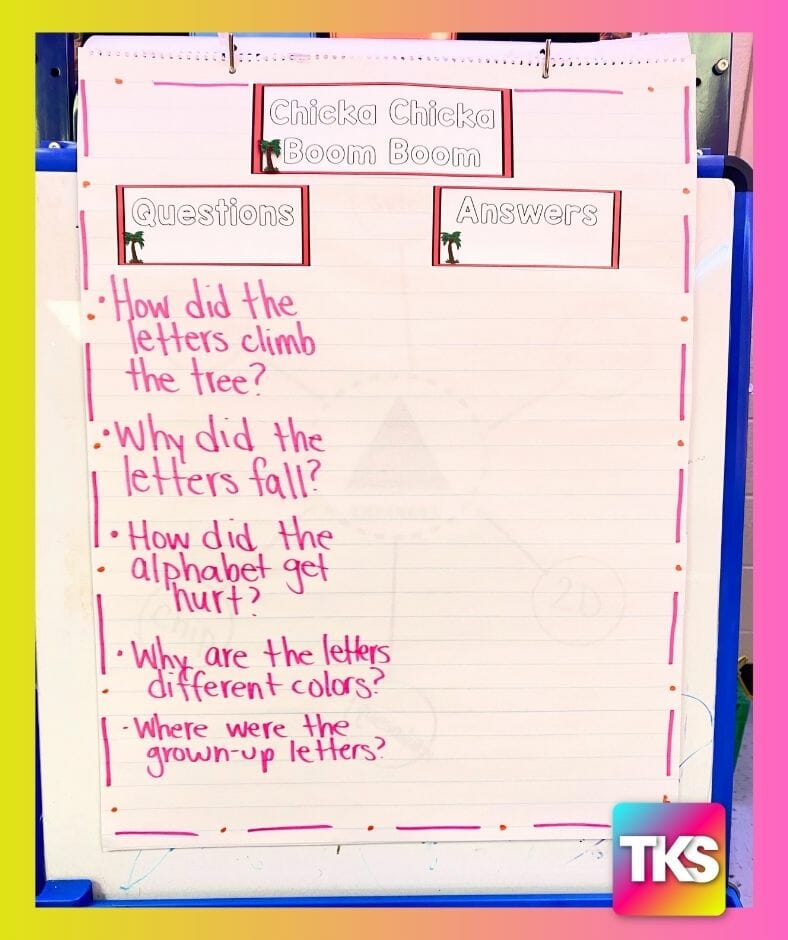 Chicka Chicka
Boom Boom
Questions
Answers
• How did the
letters climb
the tree?
• Why did the
letters fall?
• How did the
alphabet get
hurt?
• Why are the letters
different colors?
- Where were the
grown-up letters?
2D
TKS